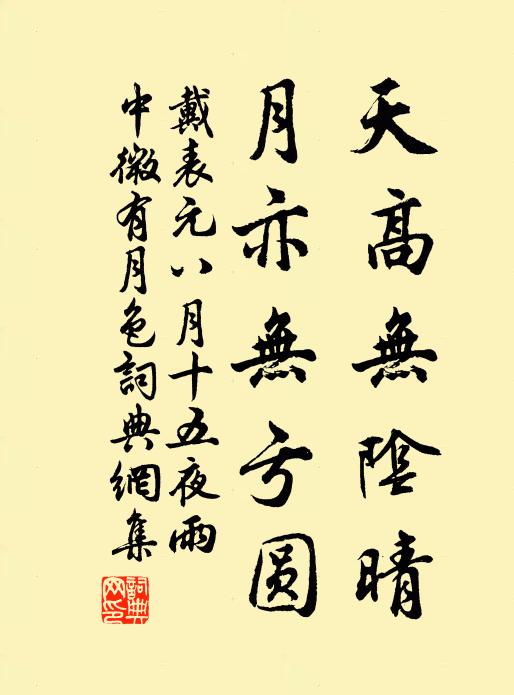 天高無陰晴
月亦無亏圆
戴表元八月十五夜雨
中微有月色詞典網集
詞典网印